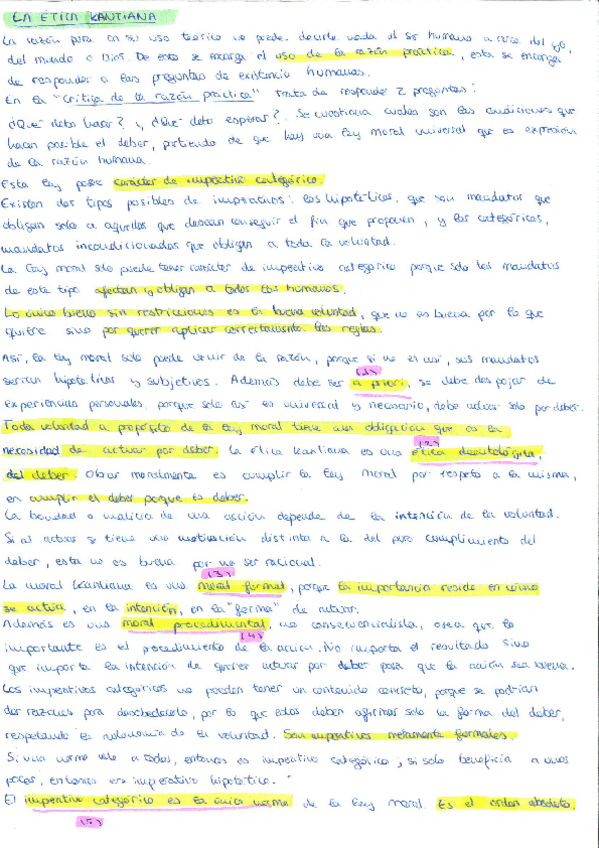 LA ÉTICA KANTIANA
La razón pura en su uso teórico no puede decirle nada al ser humano acerca del yo,
del mundo o Dios. De esto se encarga el uso de la razón práctica, esta se encarga
de responder a las preguntas de existencia humanas.
En la "Crítica de la razón práctica" trata de responder 2 preguntas:
¿Qué debo hacer? y ¿Qué debo esperar?. Se cuestiona cuales son las condiciones que
hacen posible el deber, partiendo de que hay una ley moral universal que es expresión
de la razón humana.
Esta ley posee carácter de imperativo categórico.
Existen dos tipos posibles de imperativos: los hipotéticos, que son mandatos que
obligan solo a aquellos que desean conseguir el fin que proponen, y los categóricos,
mandatos incondicionados que obligan a toda la voluntad.
La ley moral solo puede tener carácter de imperativo categórico porque solo los mandatos
de este tipo afectan y obligan a todos los humanos.
Lo único bueno sin restricciones es la buena voluntad, que no es buena por lo que
quiere sino por querer aplicar correctamente las reglas.
Así, la ley moral solo puede venir de la razón, porque si no es así, sus mandatos
serían hipotéticos y subjetivos. Además debe ser a priori, se debe despojar de
(1)
experiencias personales, porque solo así es universal y necesario, debe actuar solo por deber.
Toda voluntad a propósito de la ley moral tiene una obligación que es la
(2)
necesidad de actuar por deber. La ética kantiana es una ética deontológica,
del deber. Obrar moralmente es cumplir la ley moral por respeto a la misma,
en cumplir el deber porque es deber.
La bondad o malicia de una acción depende de la intención de la voluntad.
Si al actuar se tiene una motivación distinta a la del puro cumplimiento del
deber, esta no es buena por no ser racional.
(3)
La moral kantiana es una moral formal, porque la importancia reside en cómo
se actúa, en la intención, en la "forma" de actuar.
Además es una moral procedimental, no consecuencialista, o sea que lo
(4)
importante es el procedimiento de la acción. No importa el resultado sino
que importa la intención de querer actuar por deber para que la acción sea buena.
Los imperativos categóricos no pueden tener un contenido concreto, porque se podrían
dar razones para desobedecerlo, por lo que estos deben afirmar solo la forma del deber,
respetando la autonomía de la voluntad. Son imperativos meramente formales.
Si una norma vale a todos, entonces es imperativo categórico; si solo beneficia a unos
pocos, entonces es imperativo hipotético.
El imperativo categórico es la única norma de la ley moral. Es el orden absoluto.
(5)